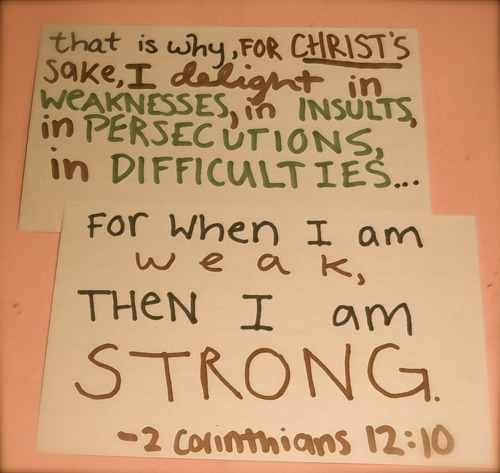 that is why, FOR CHRIST'S
sake, I delight in
WEAKNESSES, in INSULTS,
in PERSECUTIONS,
in DIFFICULTIES...
FOR when I am
weak,
THEN I am
STRONG.
-2 Corinthians 12:10